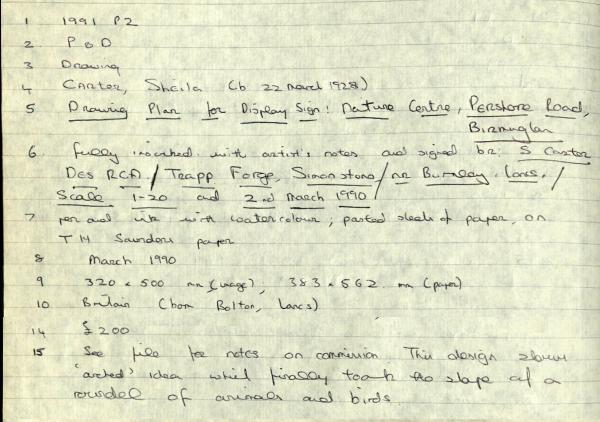 1 1991 P2
2 P & D
3 Drawing
4 Carter, Sheila (b 22 March 1928)
5 Drawing Plan for Display Sign: Nature Centre, Pershore Road,
Birmingham
6 fully inscribed with artist's notes and signed br: S Carter
Des RCA / Trapp Forge, Simonstone / nr Burnley. Lancs. /
Scale 1-20 and 2nd March 1990
7 pen and ink with watercolour; pasted sheet of paper, on
T H Saunders paper
8 March 1990
9 320 x 500 mm (image), 383 x 562 mm (paper)
10 Britain (born Bolton, Lancs)
14 £200
15 See file for notes on commission. This design shows
'arched' idea which finally took the shape of a
roundel of animals and birds.